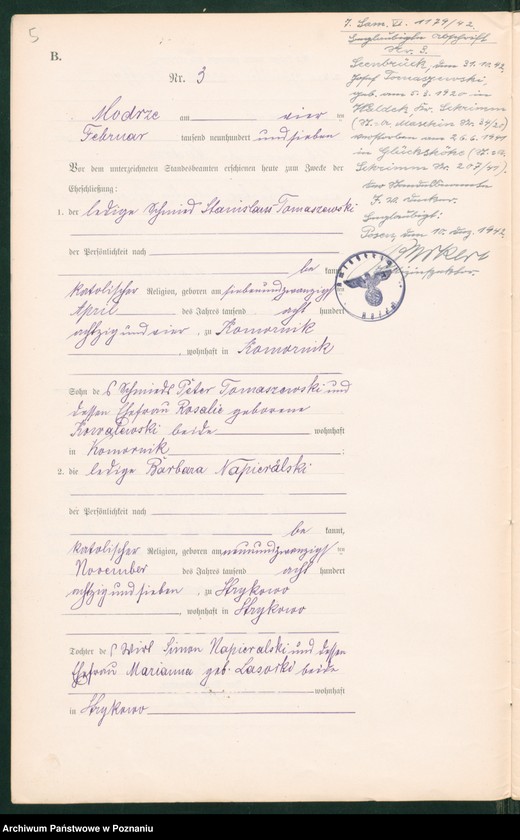 5
B.
Nr. 3
Modrze am vier ten
Februar tausend neunhundert und sieben
Vor dem unterzeichneten Standesbeamten erschienen heute zum Zwecke der
Eheschließung:
1. der ledige Schmied Stanislaus Tomaszewski
der Persönlichkeit nach
be kannt,
katolischer Religion, geboren am siebenundzwanzigsten
April des Jahres tausend acht hundert
achtzig und vier, zu Komornik
, wohnhaft in Komornik
Sohn des Schmieds Peter Tomaszewski und
dessen Ehefrau Rosalie geborene
Kowalewski beide wohnhaft
in Komornik ;
2. die ledige Barbara Napieralski
der Persönlichkeit nach
be kannt,
katolischer Religion, geboren am neunundzwanzigsten
November des Jahres tausend acht hundert
achtzig und sieben, zu Strykowo
, wohnhaft in Strykowo
Tochter des Wirt Simon Napieralski und dessen
Ehefrau Marianna geb. Lasocki beide
wohnhaft
in Strykowo
7. Sam. VI. 1179/42.
Beglaubigte Abschrift
Nr. 3.
Seenbrück, den 31. 10. 42
Josef Tomaszewski,
geb. am 5. 3. 1920 in
Kr. Schrimm
verstorben am 25. 6. 1941
in
Schrimm Nr. 207/41).
Der Standesbeamte
Beglaubigt:
Posen, den 10. Dez. 1942
Archiwum Państwowe w Poznaniu